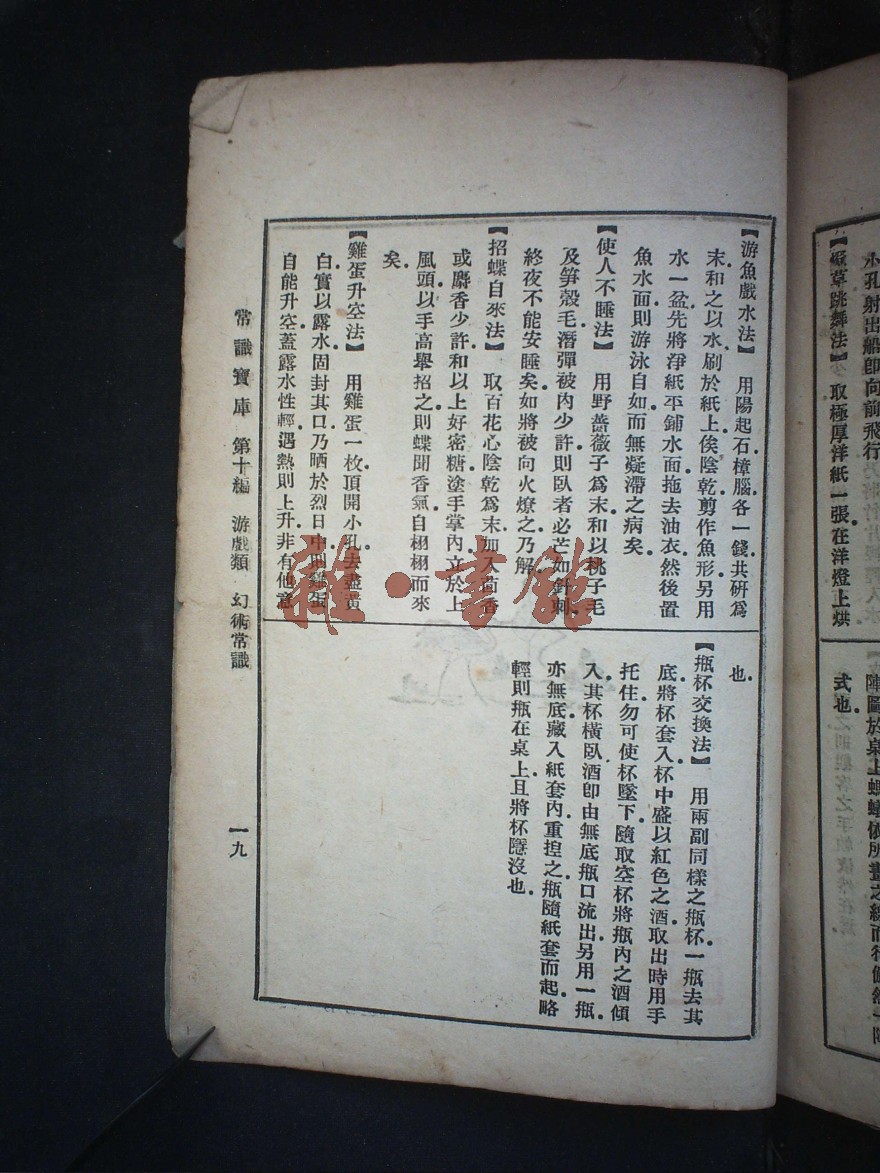 小孔射出船卽向前飛行
草跳舞法】取極厚洋紙一張在洋燈上烘
陣圖於桌上
式也
【游魚戲水法】 用陽起石樟腦各一錢共研爲
末和之以水刷於紙上俟陰乾剪作魚形另用
水一盆先將淨紙平鋪水面拖去油衣然後置
魚水面則游泳自如而無凝滯之病矣
【使人不睡法】 用野薔薇子爲末和以桃子毛
及笋殼毛潛彈被內少許則臥者必芒如針刺
終夜不能安睡矣如將被向火燎之乃解
【招蝶自來法】 取百花心陰乾爲末加入茴香
或麝香少許和以上好密糖塗手掌內立於上
風頭以手高舉招之則蝶聞香氣自栩栩而來
矣
【雞蛋升空法】 用雞蛋一枚頂開小孔去盡黃
白實以露水固封其口乃晒於烈日中則雞蛋
自能升空蓋露水性輕遇熱則上升非有他意
也
【瓶杯交換法】 用兩副同樣之瓶杯一瓶去其
底將杯套入杯中盛以紅色之酒取出時用手
托住勿可使杯墜下隨取空杯將瓶內之酒傾
入其杯橫臥酒卽由無底瓶口流出另用一瓶
亦無底藏入紙套內重捏之瓶隨紙套而起略
輕則瓶在桌上且將杯隱沒也
常識寶庫 第十編 游戲類 幻術常識
一九
雜·書館